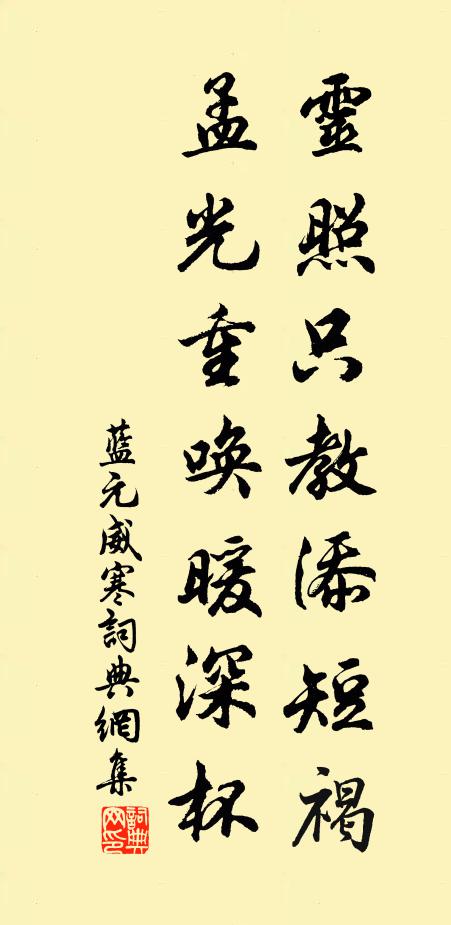 靈照只教添短褐
孟光重喚暖深杯
藍元威寒詞典網集
詞典网印